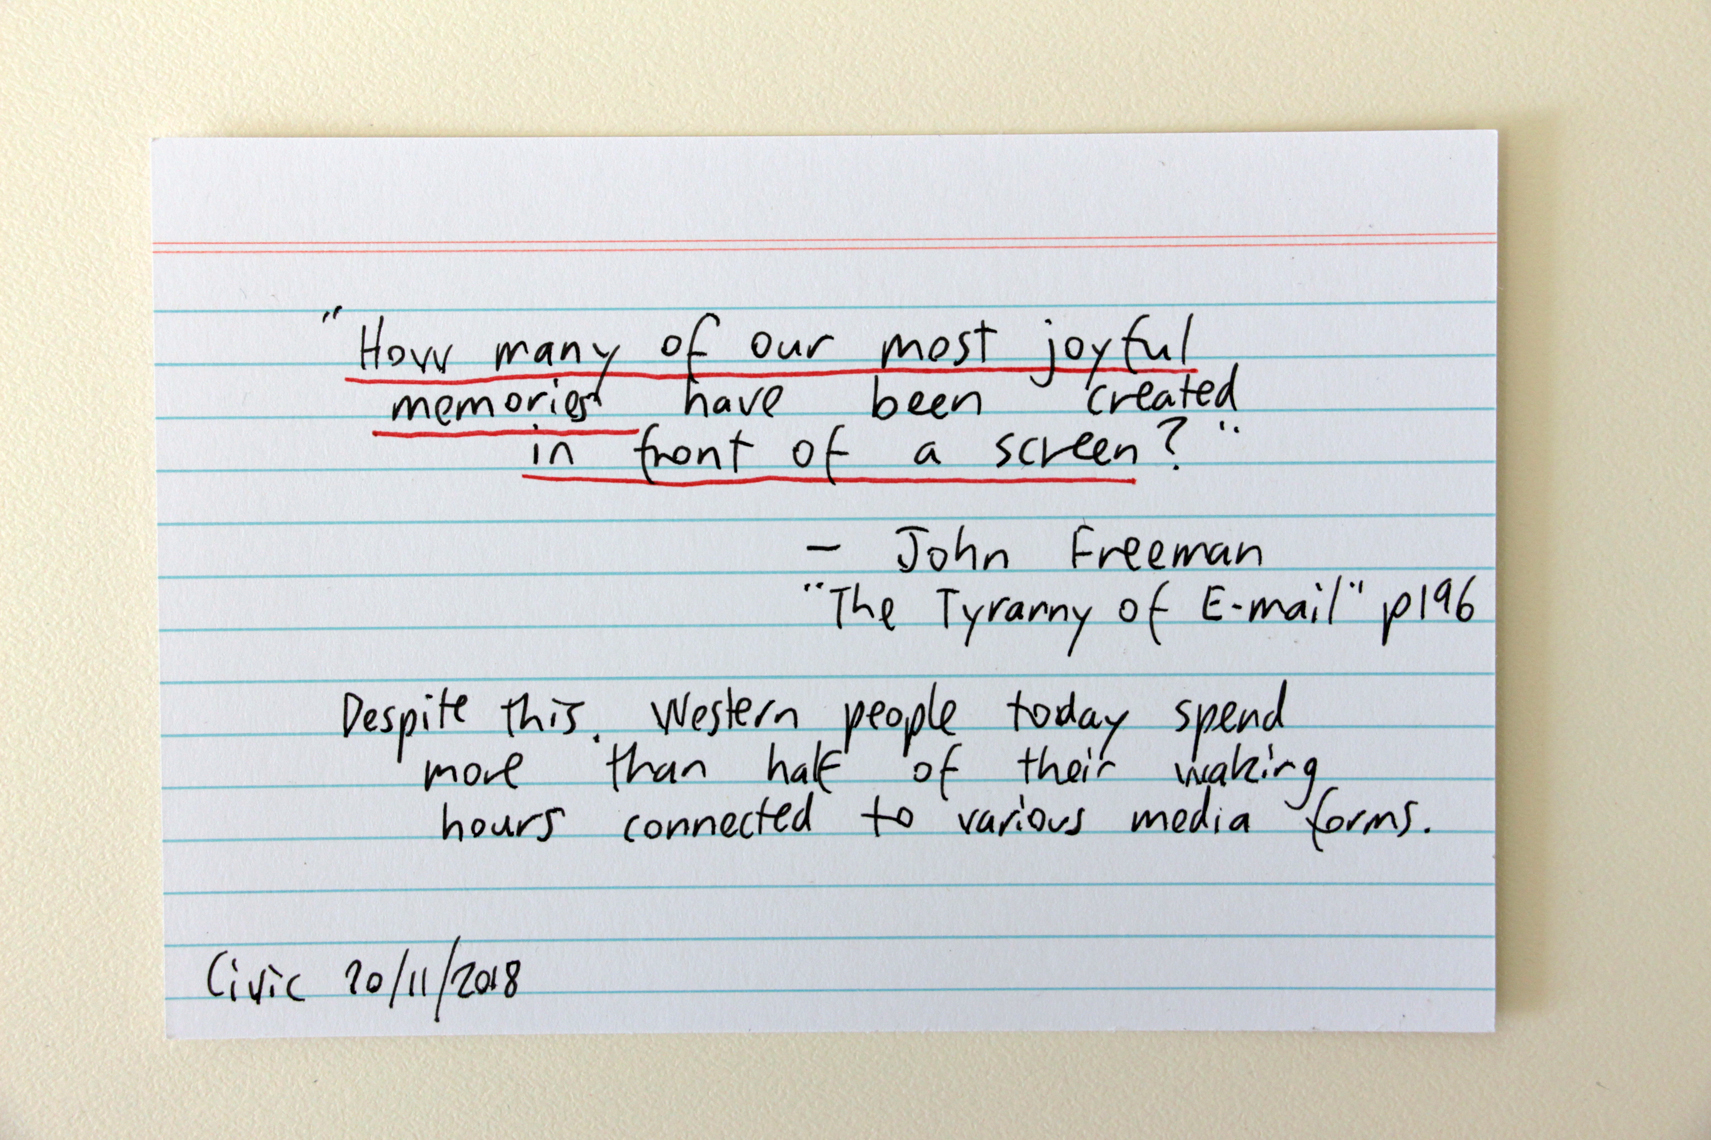 "How many of our most joyful
memories have been created
in front of a screen?"
- John Freeman
"The Tyranny of E-mail" p196
Despite this, Western people today spend
more than half of their waking
hours connected to various media forms.
Civic 20/11/2018